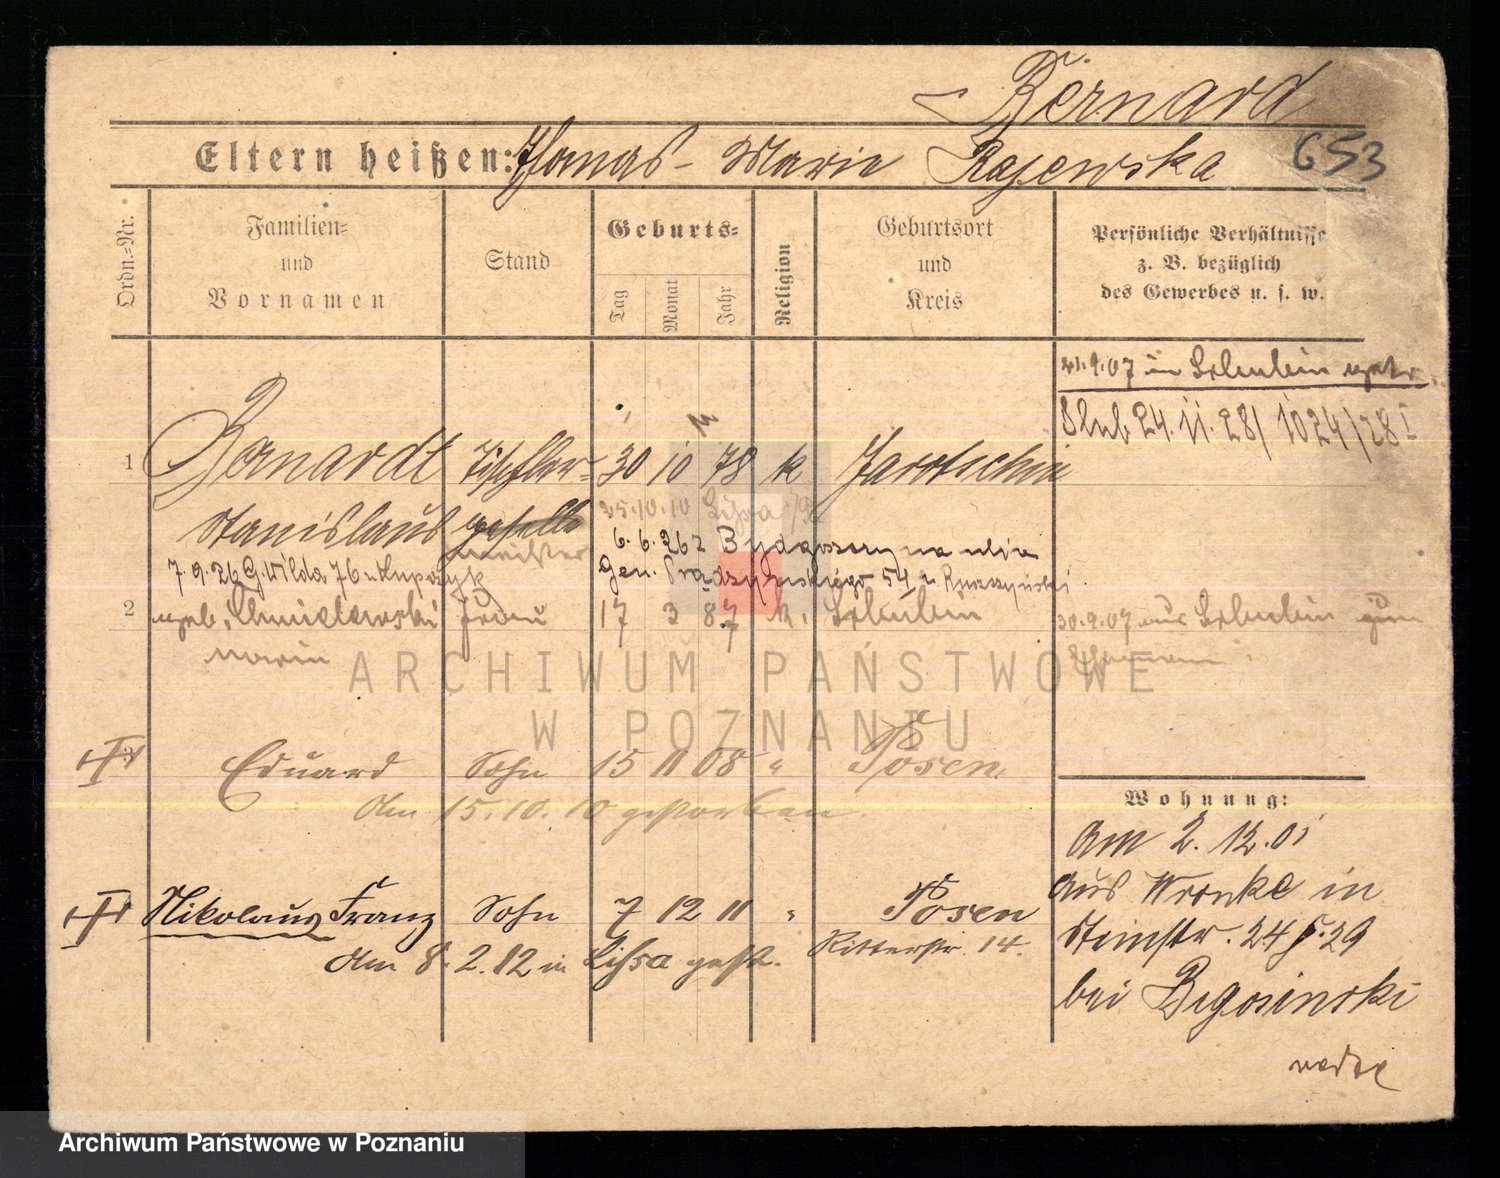 Bernard
Eltern heißen: Thomas - Marie Rajewska 653
Ordn.-Nr.
Familien-
und
Vornamen
Stand
Geburts-
Tag
Monat
Jahr
Religion
Geburtsort
und
Kreis
Persönliche Verhältnisse
z. B. bezüglich
des Gewerbes u. s. w.
21.9.07 in
Slub 24.11.28/ 1024/28 I
1 Bernardt Tischler- 30 10 78 k Jarotschin
Stanislaus geselle 25.10.10 Lissa
meister
6.6. Bydgoszcz na ulicę
7.9.26 G. Wilda 76 u Gen. Prądzyńskiego 54 u
2 geb. Chmielewski Frau 17 3 87 k.
30.9.07 aus
3 Eduard Sohn 15 11 08 " Posen
den 15.10.10 gestorben.
Nikolaus Franz Sohn 7 12 11 " Posen
den 8.2.12 in Lissa gest. Ritterstr. 14.
Wohnung:
Am 2.12.01
aus Wronke in
Steinstr. 24 29
bei
ARCHIWUM PAŃSTWOWE
W POZNANIU
Archiwum Państwowe w Poznaniu